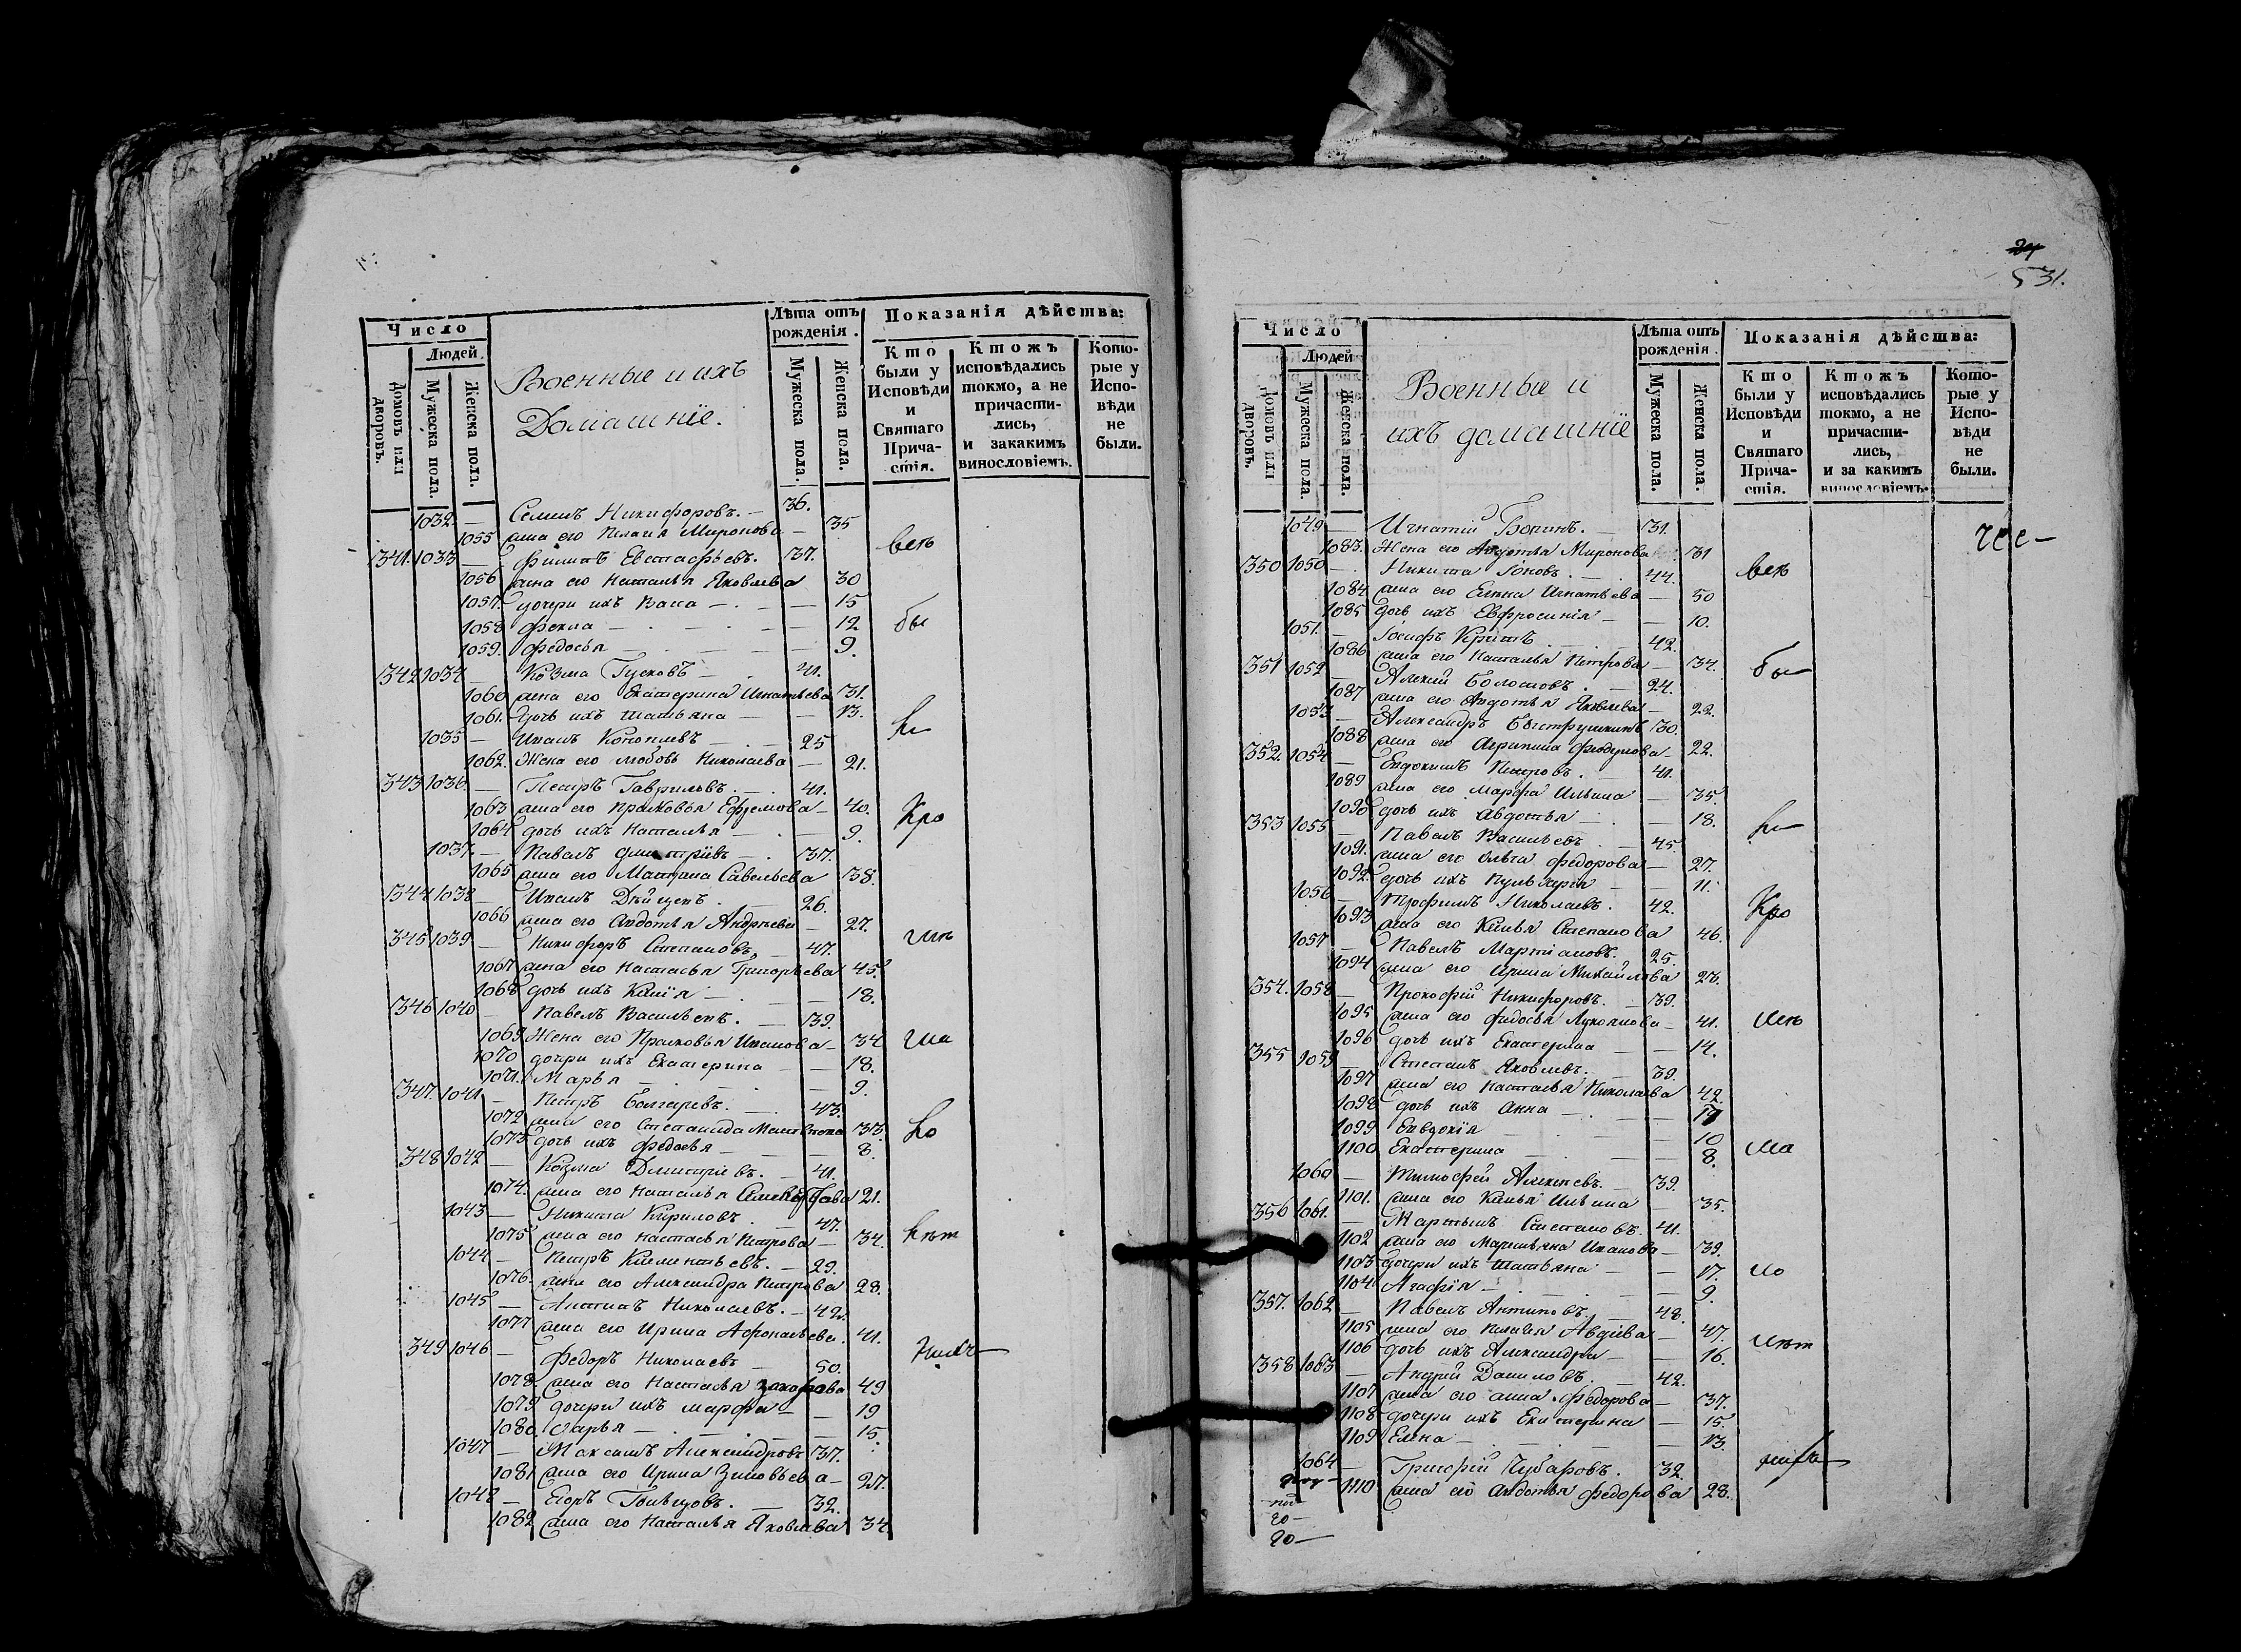 Число
Людей
Домовъ или дворовъ.
Мужеска пола.
Женска пола.
Военныя и ихъ
Домашніе.
Лѣта отъ рожденія.
Мужеска пола.
Женска пола.
Показанія дѣйства:
Кто были у Исповѣди и Святаго Причастія.
Ктожъ исповѣдались токмо, а не причастились, и закакимъ винословіемъ.
Которые у Исповѣди не были.
1032 — Никифоровъ. — 36.
1055 жена его Пелагія Миронова — 35
341. 1033 — Филипъ Евстафьевъ. 37.
1056 жена его Наталья Яковлева 30
1057 дочери ихъ Васса — 15
1058 Фекла — 12.
1059. Федосья — 9.
342 1034 — Козма Гусковъ — 41.
1060 жена его Екатерина Игнатьева 31.
1061. дочь ихъ Татьяна — 13.
1035 — Иванъ Коноплевъ — 25
1062. Жена его Любовь Николаева — 21.
343 1036. — Петръ Гавриловъ. — 41.
1063 жена его Прасковья Ефремова — 40.
1064 дочь ихъ Наталья — 9.
1037. — Павелъ Дмитріевъ — 37.
1065 жена его Матрена Савельева 38.
344 1038 — Иванъ — 26.
1066 жена его Авдотья Андреева — 27.
345 1039 — Никифоръ Степановъ — 47.
1067 жена его Настасья Григорьева 45.
1068 дочь ихъ Ксенія — 18.
346 1040 — Павелъ Васильевъ. — 39.
1069 Жена его Прасковья Иванова — 34
1070 дочери ихъ Екатерина — 18.
1071. Марья — 9.
347. 1041 — Петръ Болгаревъ. — 43.
1072 жена его Степанида Матвѣева 33.
1073 дочь ихъ Федосья — 8.
348 1042 — Козма Дмитріевъ. — 41.
1074. жена его Наталья 21.
1043 — Никита Кириловъ. — 47.
1075 жена его Настасья Петрова — 34.
1044 — Петръ Климентьевъ. — 29.
1076. жена его Александра Петрова 28.
1045 — Антипъ Николаевъ. — 42.
1077 жена его Ирина Афонасьева. 41.
349 1046 — Федоръ Николаевъ — 50.
1078. жена его Настасья Захарова 49
1079 дочери ихъ Марфа — 19
1080. Дарья — 15.
1047 — Максимъ Александровъ 37.
1081 жена его Ирина Зиновьева — 27.
1048 — Егоръ — 32.
1082 жена его Наталья Яковлева 34.
всѣ
бы
ли
531.
Число
Людей
Домовъ или дворовъ.
Мужеска пола.
Женска пола.
Военныя и
ихъ домашніе
Лѣта отъ рожденія.
Мужеска пола.
Женска пола.
Показанія дѣйства:
Кто были у Исповѣди и Святаго Причастія.
Ктожъ исповѣдались токмо, а не причастились, и за какимъ винословіемъ.
Которые у Исповѣди не были.
1049 — Игнатій — 31.
1083. Жена его Авдотья Миронова 31
350 1050 — Никита Іоновъ. — 44.
1084 жена его Елена Игнатьева — 50
1085 дочь ихъ Евфросинія — 10.
1051. — Іосифъ — 42.
1086 жена его Наталья Петрова — 34.
351 1052 — Алексѣй Болотовъ. — 24.
1087 жена его Авдотья Яковлева — 22.
1053 — Александръ 30.
1088 жена его Агрипина Федулова — 22.
352. 1054 — Евдокимъ Петровъ. — 41.
1089 жена его Марфа Ильина — 35.
1090 дочь ихъ Авдотья — 18.
353 1055 — Павелъ Васильевъ — 45.
1091. жена его Ольга Федорова — 27.
1092. дочь ихъ Пульхерія — 11.
1056 — Трофимъ Николаевъ. 42.
1093 жена его Ксенья Степанова 46.
1057 — Павелъ Мартіановъ. 25.
1094 жена его Ирина Михайлова
354. 1058 — Прокофій Никифоровъ. — 39.
1095 жена его Федосья Лукоянова — 41.
1096 дочь ихъ Екатерина — 14.
355 1059 — Степанъ Яковлевъ. — 39.
1097 жена его Настасья Николаева 42.
1098 дочь ихъ Анна —
1099 Евдокія — 10
1100 Екатерина — 8.
1060 — Тимофей Алексѣевъ. — 39.
1101. жена его Ксенья Ильина — 35.
356 1061. — Мартынъ Степановъ. 41.
1102 жена его Маремьяна Иванова — 39.
1103 дочери ихъ Татьяна — 17.
1104 Агафія — 9.
357. 1062 — Павелъ Антиповъ. — 48.
1105 жена его Пелагея Авдѣева — 47.
1106 дочь ихъ Александра — 16.
358 1063 — Андрей Даниловъ. — 42.
1107 жена его Анна Федорова — 37.
1108 дочери ихъ Екатерина — 15.
1109 Елена — 13.
1064 — Григорій Чубаровъ. 32.
1110 жена его Авдотья Федорова 28.
всѣ
бы
ли